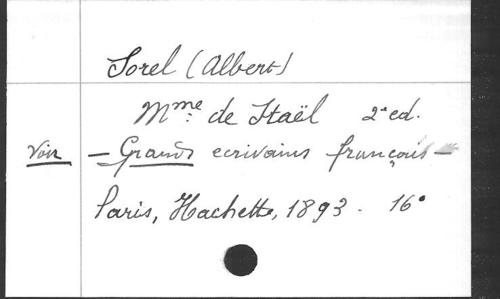 Sorel (Albert)
Mme de Staël 2e ed.
Voir — Grands ecrivains français —
Paris, Hachette, 1893. 16°